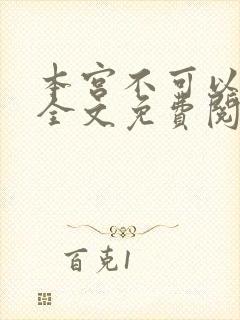 本宫不可以
全文免费阅
百克1